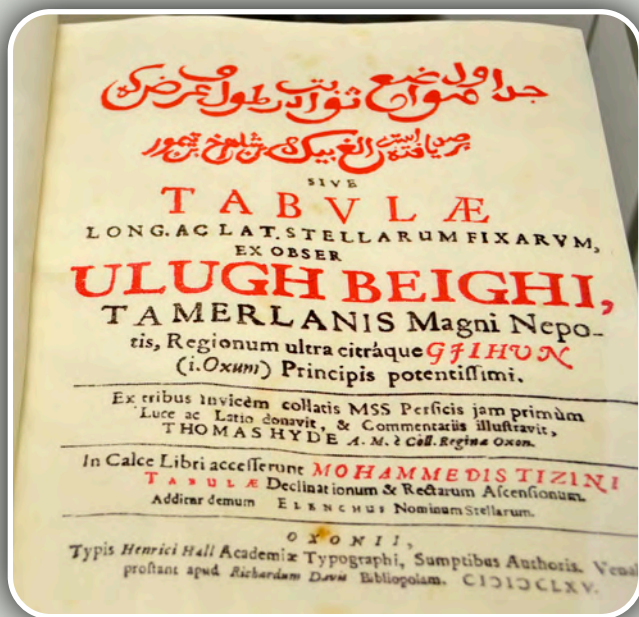 جداول مواضع ثوابت در طول و عرض که
برصد یافته است الغ بیک بن شاهرخ بن تیمور
SIVE
TABVLÆ
LONG. AC LAT. STELLARUM FIXARVM,
EX OBSER
ULUGH BEIGHI,
TAMERLANIS Magni Nepo-
tis, Regionum ultra citráque GJIHUN
(i. Oxum) Principis potentissimi.
Ex tribus invicèm collatis MSS Persicis jam primùm
Luce ac Latio donavit, & Commentariis illustravit,
THOMAS HYDE A. M. è Coll. Reginæ Oxon.
In Calce Libri accesserunt MOHAMMEDIS TIZINI
TABULÆ Declinationum & Rectarum Ascensionum.
Additur demum ELENCHUS Nominum Stellarum.
OXONII,
Typis Henrici Hall Academiæ Typographi, Sumptibus Authoris. Venal
prostant apud Richardum Davis Bibliopolam. CIƆIƆCLXV.